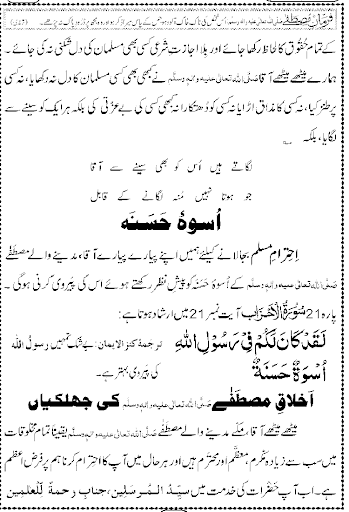 فرمانِ مصطفےٰ صلَّی اللہ تعالیٰ علیہ واٰلہٖ وسلَّم اُس شخص کی ناک خاک آلود ہو جس کے پاس میرا ذکر ہو اور وہ مجھ پر دُرُودِ پاک نہ پڑھے۔
کے تمام حُقُوق کا لحاظ رکھا جائے اور بِلا اجازتِ شرعی کسی بھی مسلمان کی دل شکنی نہ کی جائے۔
ہمارے میٹھے میٹھے آقا صلَّی اللہ تعالیٰ علیہ واٰلہٖ وسلَّم نے کبھی بھی کسی مسلمان کا دل نہ دُکھایا، نہ کسی
پر طنز کیا، نہ کسی کا مذاق اڑایا نہ کسی کو دُھتکارا نہ کبھی کسی کی بے عزّتی کی بلکہ ہر ایک کو سینے سے
لگایا، بلکہ
لگاتے ہیں اُس کو بھی سینے سے آقا
جو ہوتا نہیں مُنہ لگانے کے قابل
اُسوۂ حَسَنَہ
اِحتِرامِ مسلم بجا لانے کیلئے ہمیں اپنے پیارے پیارے آقا، مدینے والے مصطَفٰے
صلَّی اللہ تعالیٰ علیہ واٰلہٖ وسلَّم کے اُسوۂ حَسَنہ کو پیشِ نظر رکھتے ہوئے اس کی پَیروی کرنی ہوگی۔
پارہ 21 سُوْرَۃُ الْاَحْزَاب آیت نمبر 21 میں ارشاد ہوتا ہے:
لَقَدْ كَانَ لَكُمْ فِیْ رَسُوْلِ اللّٰهِ ترجَمۂ کنزالایمان: بے شک تمہیں رسولُ اللہ
اُسْوَةٌ حَسَنَةٌ کی پَیروی بہتر ہے۔
اَخلاقِ مصطَفٰے صلَّی اللہ تعالیٰ علیہ واٰلہٖ وسلَّم کی جھلکیاں
میٹھے میٹھے آقا مکّے مدینے والے مصطَفٰے صلَّی اللہ تعالیٰ علیہ واٰلہٖ وسلَّم یقینًا تمام مخلوقات
میں سب سے زیادہ مکرَّم، معظَّم اور محترم ہیں اور ہر حال میں آپ کا احتِرام کرنا ہم پر فرضِ اعظم
ہے۔ اب آپ حضرات کی خدمت میں سیِّدُ المُرسَلین، جنابِ رحمۃٌ لِّلْعٰلمین